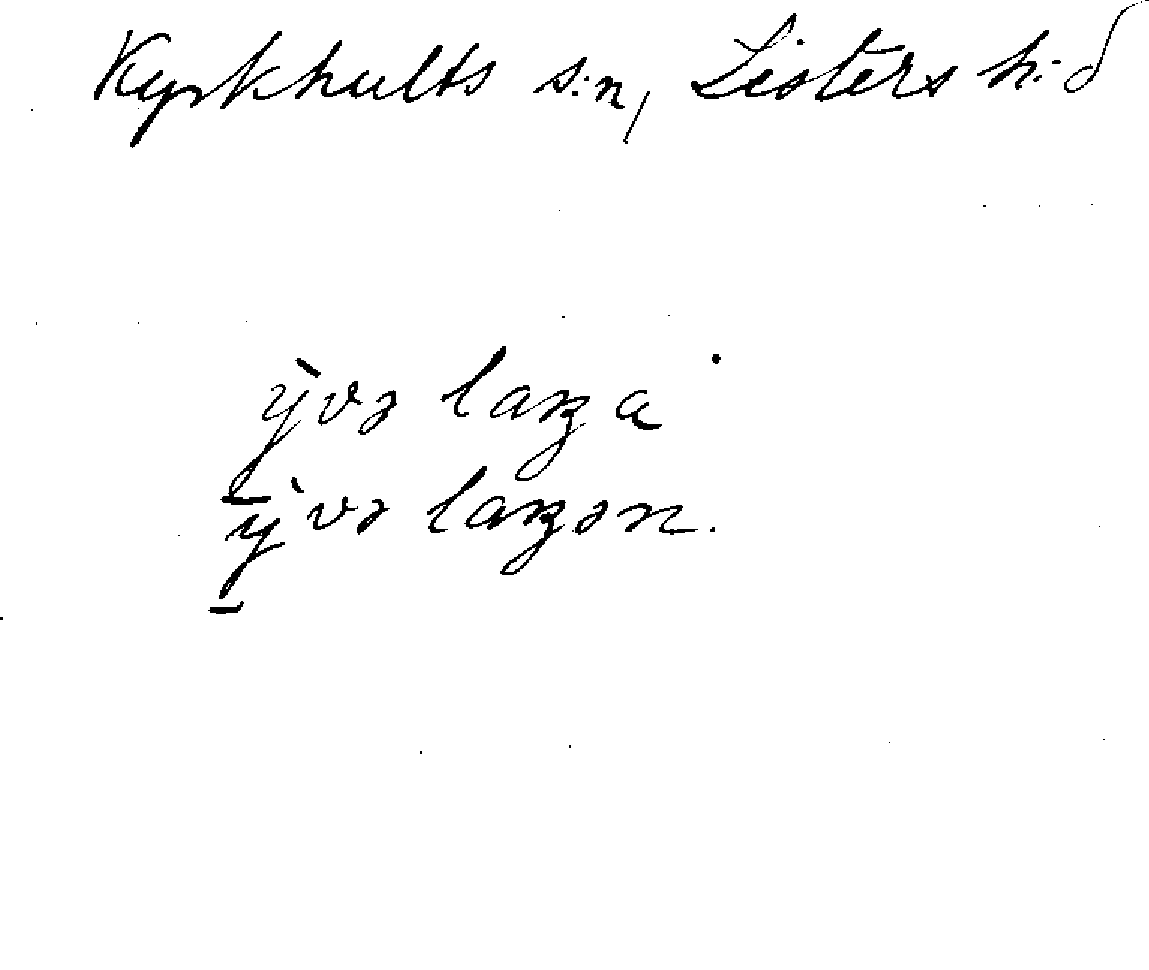 Kyrkhults s:n, Listers h:d
ỳvə laŋa
ỳvə laŋən.